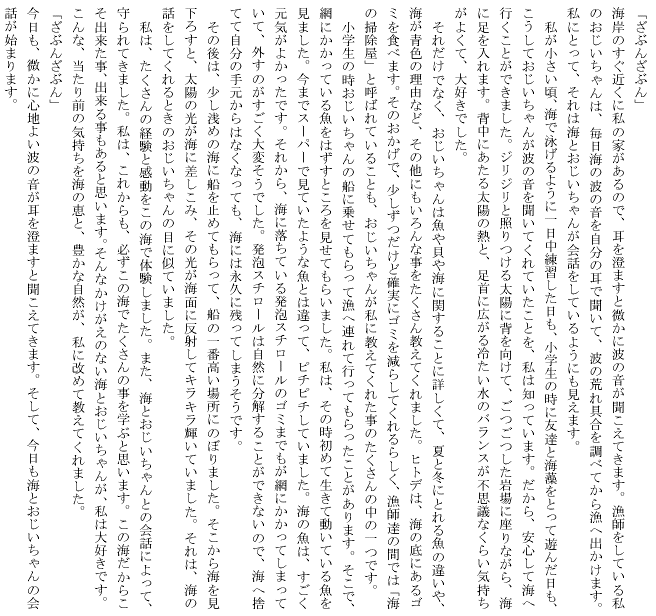 「ざぶんざぶん」
海岸のすぐ近くに私の家があるので、耳を澄ますと微かに波の音が聞こえてきます。漁師をしている私
のおじいちゃんは、毎日海の波の音を自分の耳で聞いて、波の荒れ具合を調べてから漁へ出かけます。
私にとって、それは海とおじいちゃんが会話をしているようにも見えます。
私が小さい頃、海で泳げるように一日中練習した日も、小学生の時に友達と海藻をとって遊んだ日も、
こうしておじいちゃんが波の音を聞いてくれていたことを、私は知っています。だから、安心して海へ
行くことができました。ジリジリと照りつける太陽に背を向けて、ごつごつした岩場に座りながら、海
に足を入れます。背中にあたる太陽の熱と、足首に広がる冷たい水のバランスが不思議なくらい気持ち
がよくて、大好きでした。
それだけでなく、おじいちゃんは魚や貝や海に関することに詳しくて、夏と冬にとれる魚の違いや、
海が青色の理由など、その他にもいろんな事をたくさん教えてくれました。ヒトデは、海の底にあるゴ
ミを食べます。そのおかげで、少しずつだけど確実にゴミを減らしてくれるらしく、漁師達の間では「海
の掃除屋」と呼ばれていることも、おじいちゃんが私に教えてくれた事のたくさんの中の一つです。
小学生の時おじいちゃんの船に乗せてもらって漁へ連れて行ってもらったことがあります。そこで、
網にかかっている魚をはずすところを見せてもらいました。私は、その時初めて生きて動いている魚を
見ました。今までスーパーで見ていたような魚とは違って、ピチピチしていました。海の魚は、すごく
元気がよかったです。それから、海に落ちている発泡スチロールのゴミまでもが網にかかってしまって
いて、外すのがすごく大変そうでした。発泡スチロールは自然に分解することができないので、海へ捨
てて自分の手元からはなくなっても、海には永久に残ってしまうそうです。
その後は、少し浅めの海に船を止めてもらって、船の一番高い場所にのぼりました。そこから海を見
下ろすと、太陽の光が海に差しこみ、その光が海面に反射してキラキラ輝いていました。それは、海の
話をしてくれるときのおじいちゃんの目に似ていました。
私は、たくさんの経験と感動をこの海で体験しました。また、海とおじいちゃんとの会話によって、
守られてきました。私は、これからも、必ずこの海でたくさんの事を学ぶと思います。この海だからこ
そ出来た事、出来る事もあると思います。そんなかけがえのない海とおじいちゃんが、私は大好きです。
こんな、当たり前の気持ちを海の恵と、豊かな自然が、私に改めて教えてくれました。
「ざぶんざぶん」
今日も、微かに心地よい波の音が耳を澄ますと聞こえてきます。そして、今日も海とおじいちゃんの会
話が始まります。